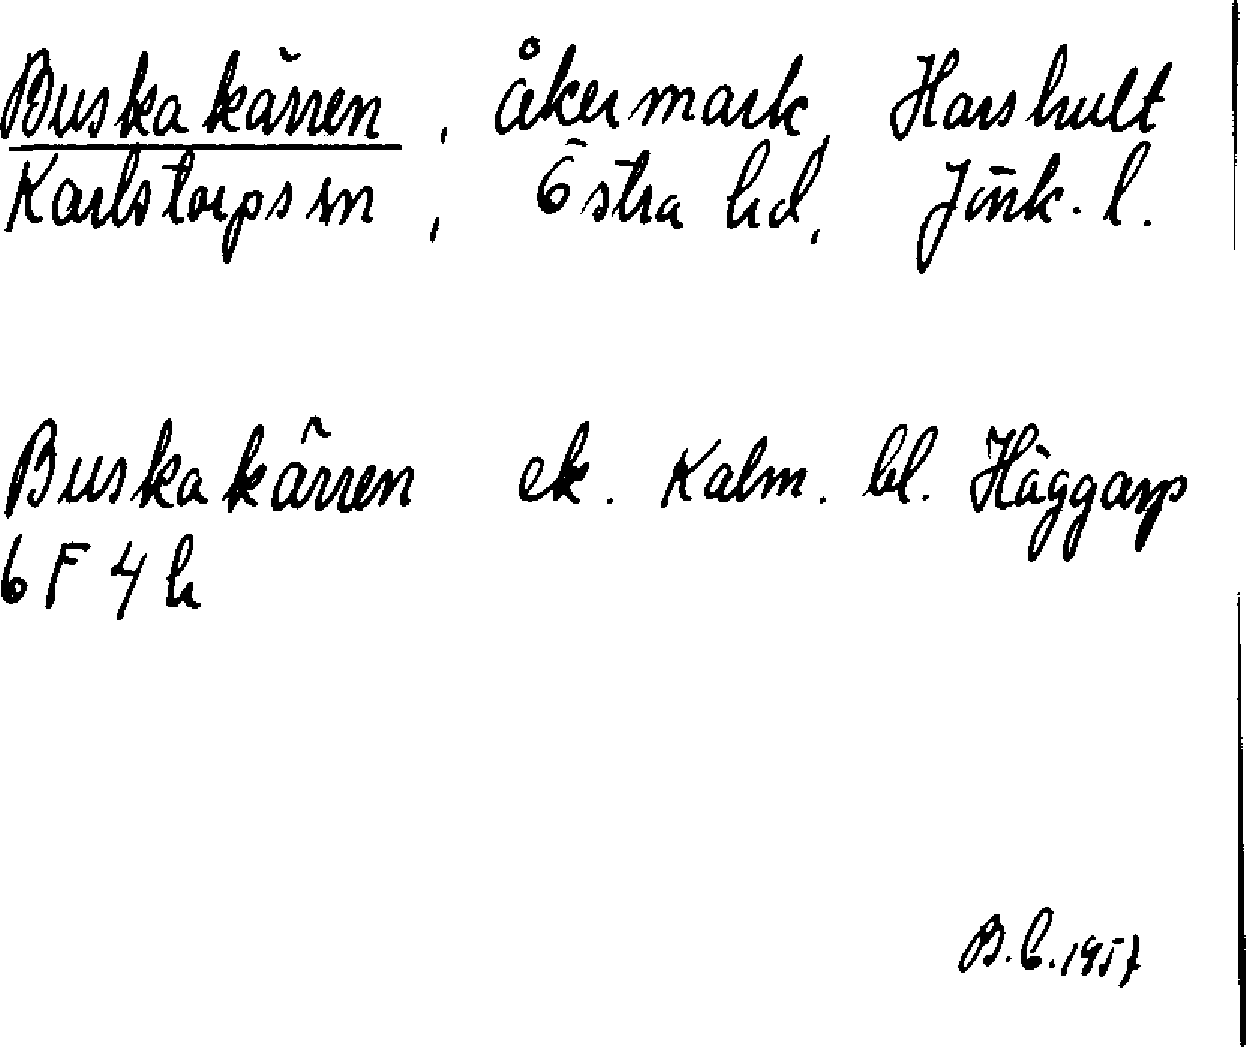 Buskakärren, åkermark, Harshult
Karlstorps sn, Östra hd, Jönk. l.
Buskakärren ek. Kalm. bl. Häggarp
6 F 4 h
B.C. 1957